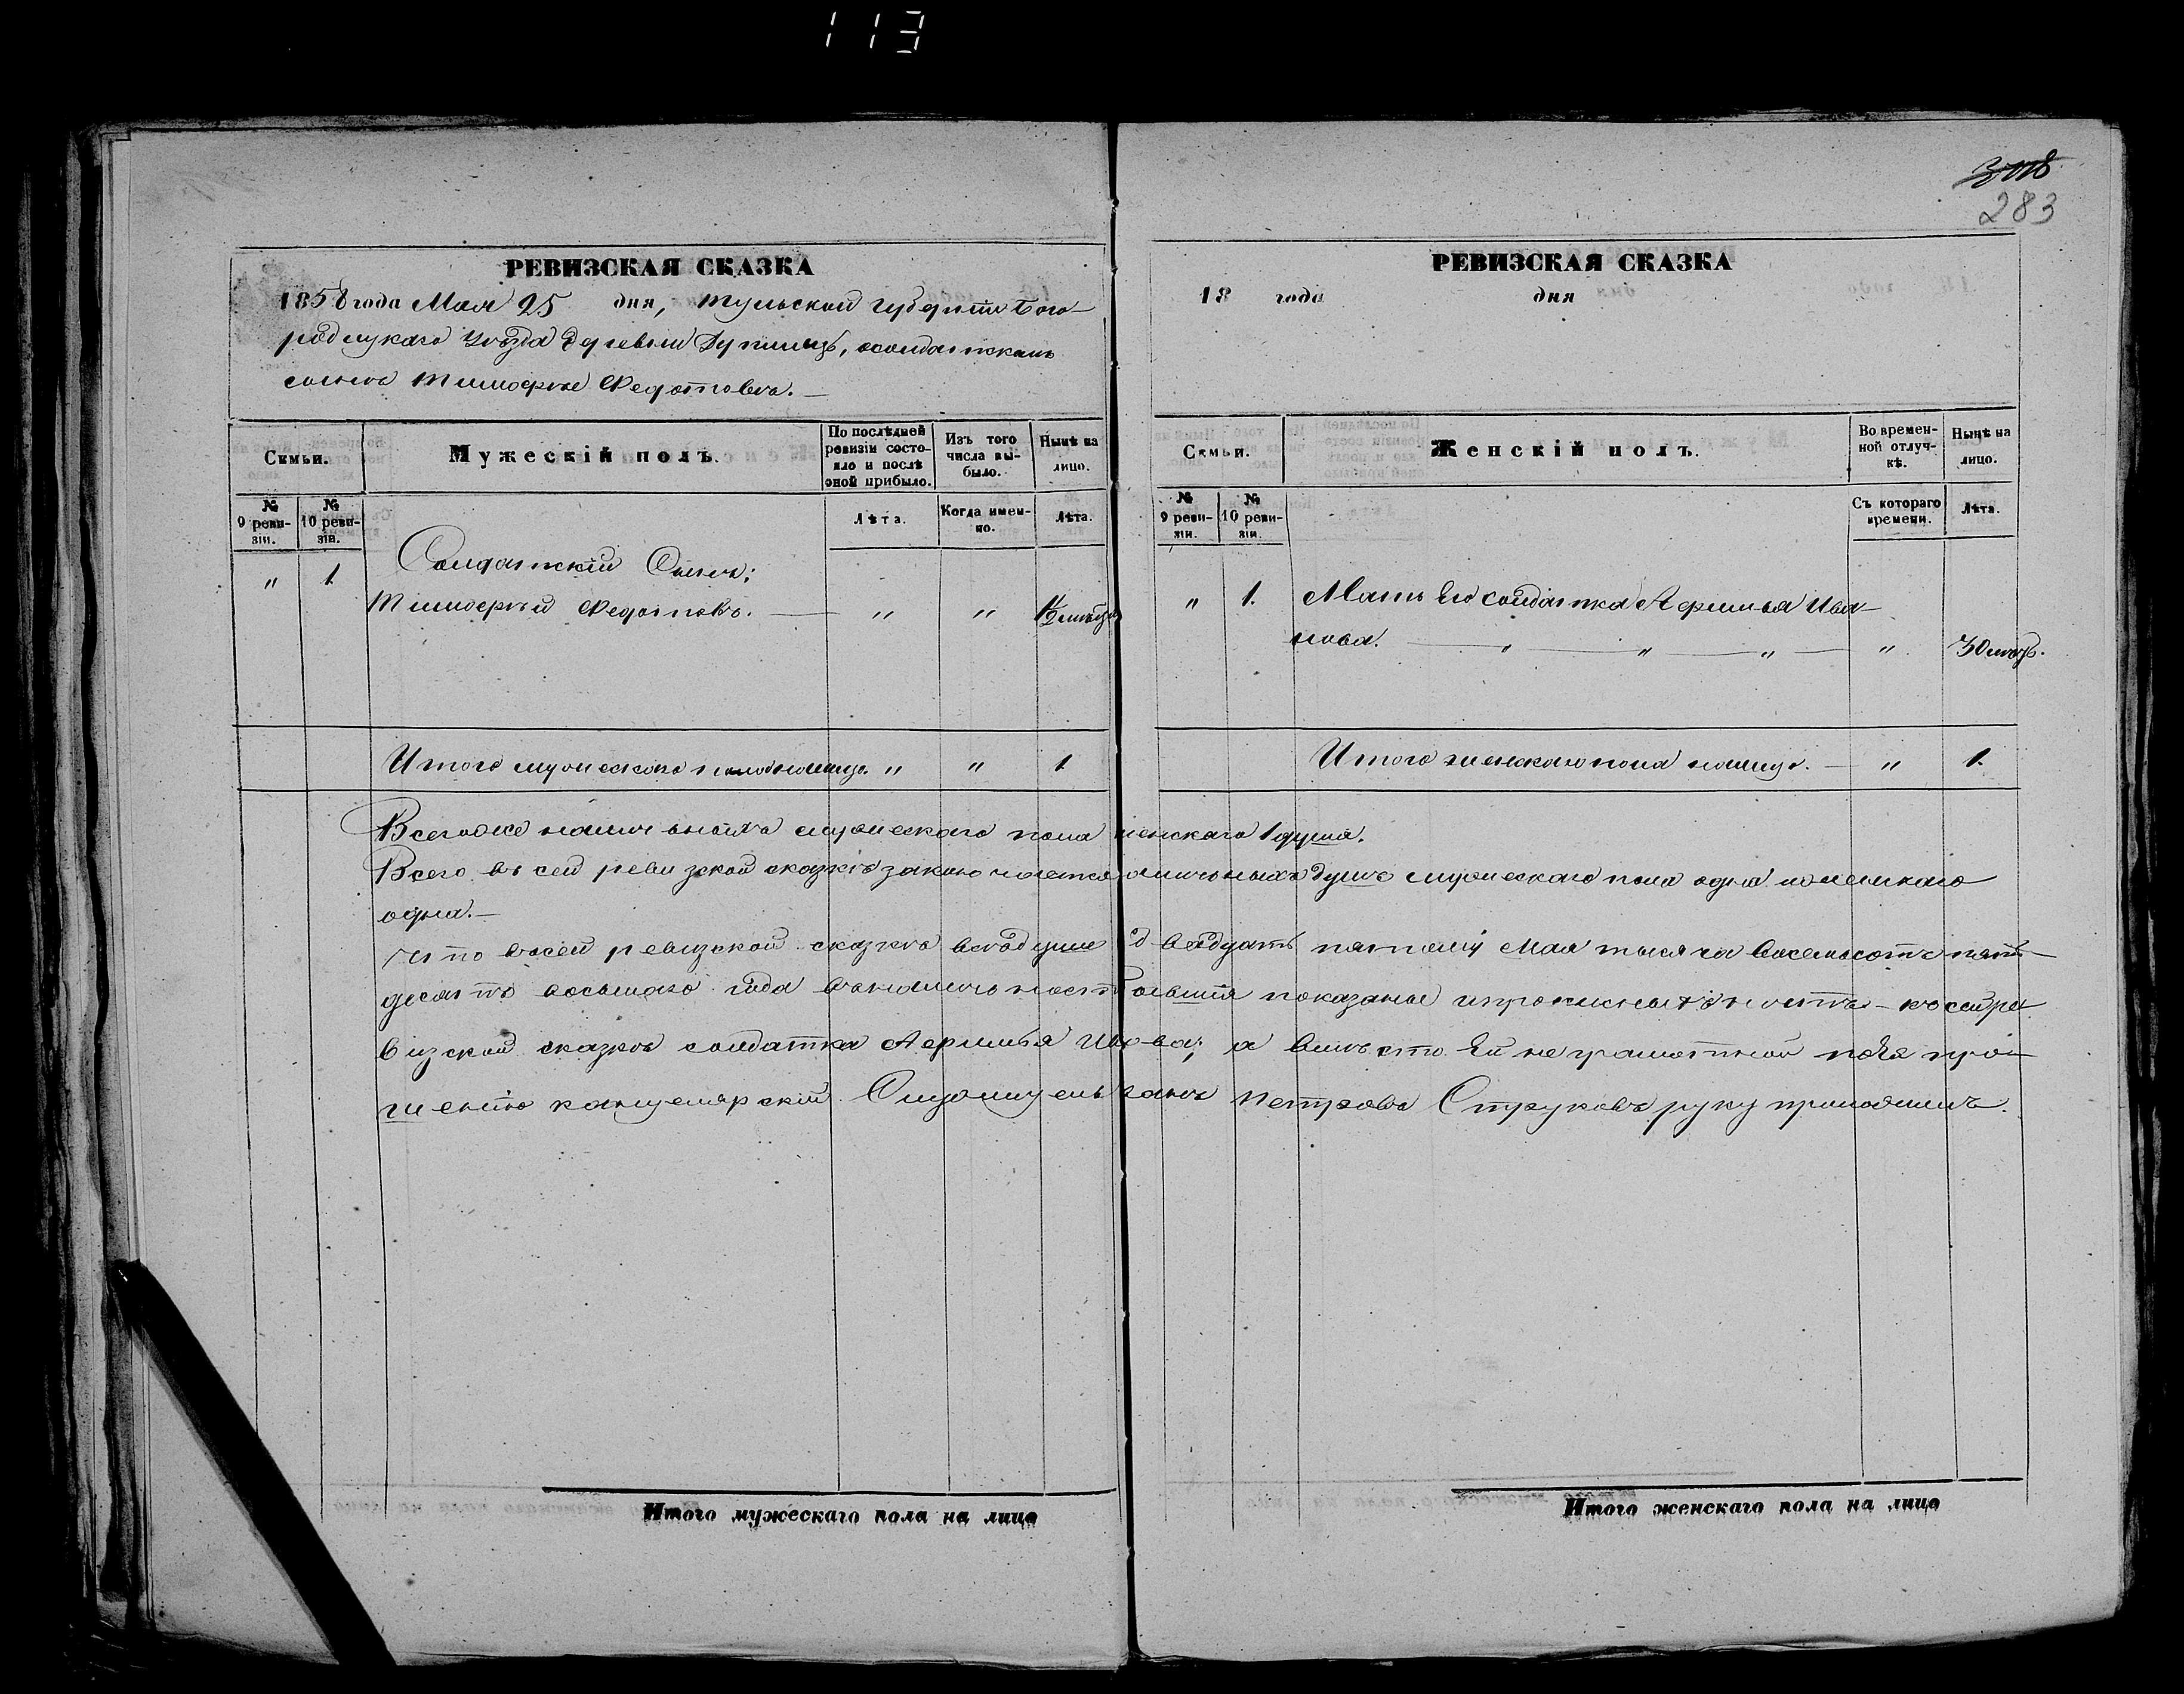 113
283
РЕВИЗСКАЯ СКАЗКА
1858 года Мая 25 дня, Тульской губернiи Бого-
родицкаго уѣзда деревни Дупишъ, осолдатскомъ
сынѣ Тимофѣе Федотовѣ.
Семьи.
Мужескій полъ.
По послѣдней ревизіи состо-яло и послѣ оной прибыло.
Изъ того числа вы-было.
Нынѣ на лицо.
№ 9 реви-зіи.
№ 10 реви-зіи.
Лѣта.
Когда имен-но.
Лѣта.
" 1 Солдатскій Сынъ:
Тимофѣй Федотовъ. " " 1/2
Итого мужескаго пола налицо. " " 1
РЕВИЗСКАЯ СКАЗКА
18 года дня
Семьи.
Женскій полъ.
Во времен-ной отлуч-кѣ.
Нынѣ на лицо.
№ 9 реви-зіи.
№ 10 реви-зіи.
Съ котораго времени.
Лѣта.
" 1. Мать Его солдатка Афимья Ива-
нова. " " " " 30
Итого женскаго пола налицо. " 1.
Всегоже наличныхъ мужескаго пола женскаго 1 душа.
Всего въ сей ревизской сказкѣ заключается наличныхъ душъ мужескаго пола одна женскаго
одна.
что въсей ревизской сказкѣ всѣ души двадцать пятому Мая тысяча восемьсотъ пять-
десятъ восьмаго года въналичности бывшія показаны ипрописныхъ нѣтъ - къ сей ре-
визской сказкѣ солдатка Афимья Ив-ва; а вмѣсто Ей неграмотной поЕя про-
шенію канцелярскій Служитель Иванъ Петровъ Струковъ руку приложилъ.
Итого мужескаго пола на лицо
Итого женскаго пола на лицо